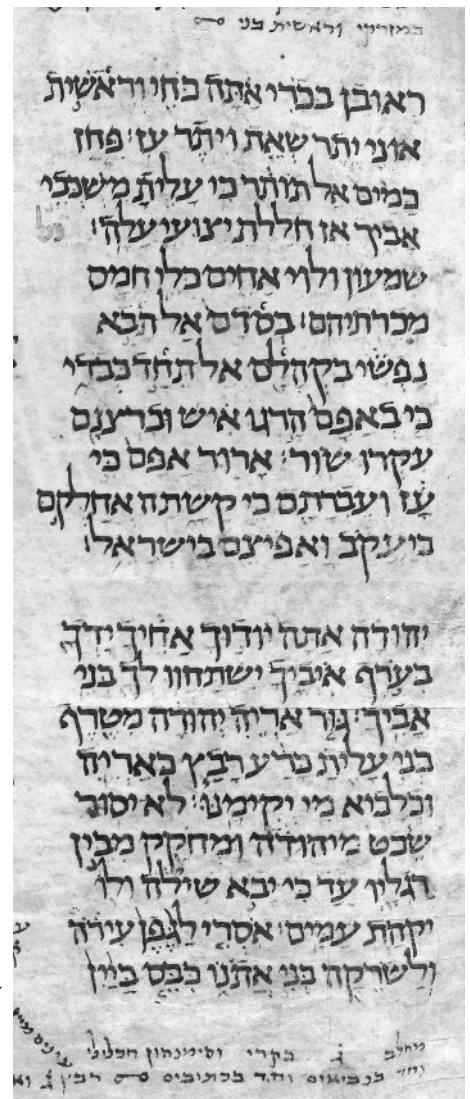 וראשית בני
ראובן בכרי אתה כחי וראשית
אוני יתר שאת ויתר עז׃ פחז
כמים אל תותר כי עלית משכבי
אביך אז חללת יצועי עלה׃
שמעון ולוי אחים כלי חמס
מכרתיהם׃ בסדם אל תבא
נפשי בקהלם אל תחד כבדי
כי באפם הרגו איש וברצנם
עקרו שור׃ ארור אפם כי
עז ועברתם כי קשתה אחלקם
ביעקב ואפיצם בישראל׃
יהודה אתה יודוך אחיך ידך
בערף איביך ישתחוו לך בני
אביך׃ גור אריה יהודה מטרף
בני עלית כרע רבץ כאריה
וכלביא מי יקימנו׃ לא יסור
שבט מיהודה ומחקק מבין
רגליו עד כי יבא שילה ולו
יקהת עמים׃ אסרי לגפן עירה
ולשרקה בני אתנו כבס ביין
ג̇ בקרי וסימנהון חכלילי עינים
וחד בנביאים וחד בכתובים רבץ ג̇